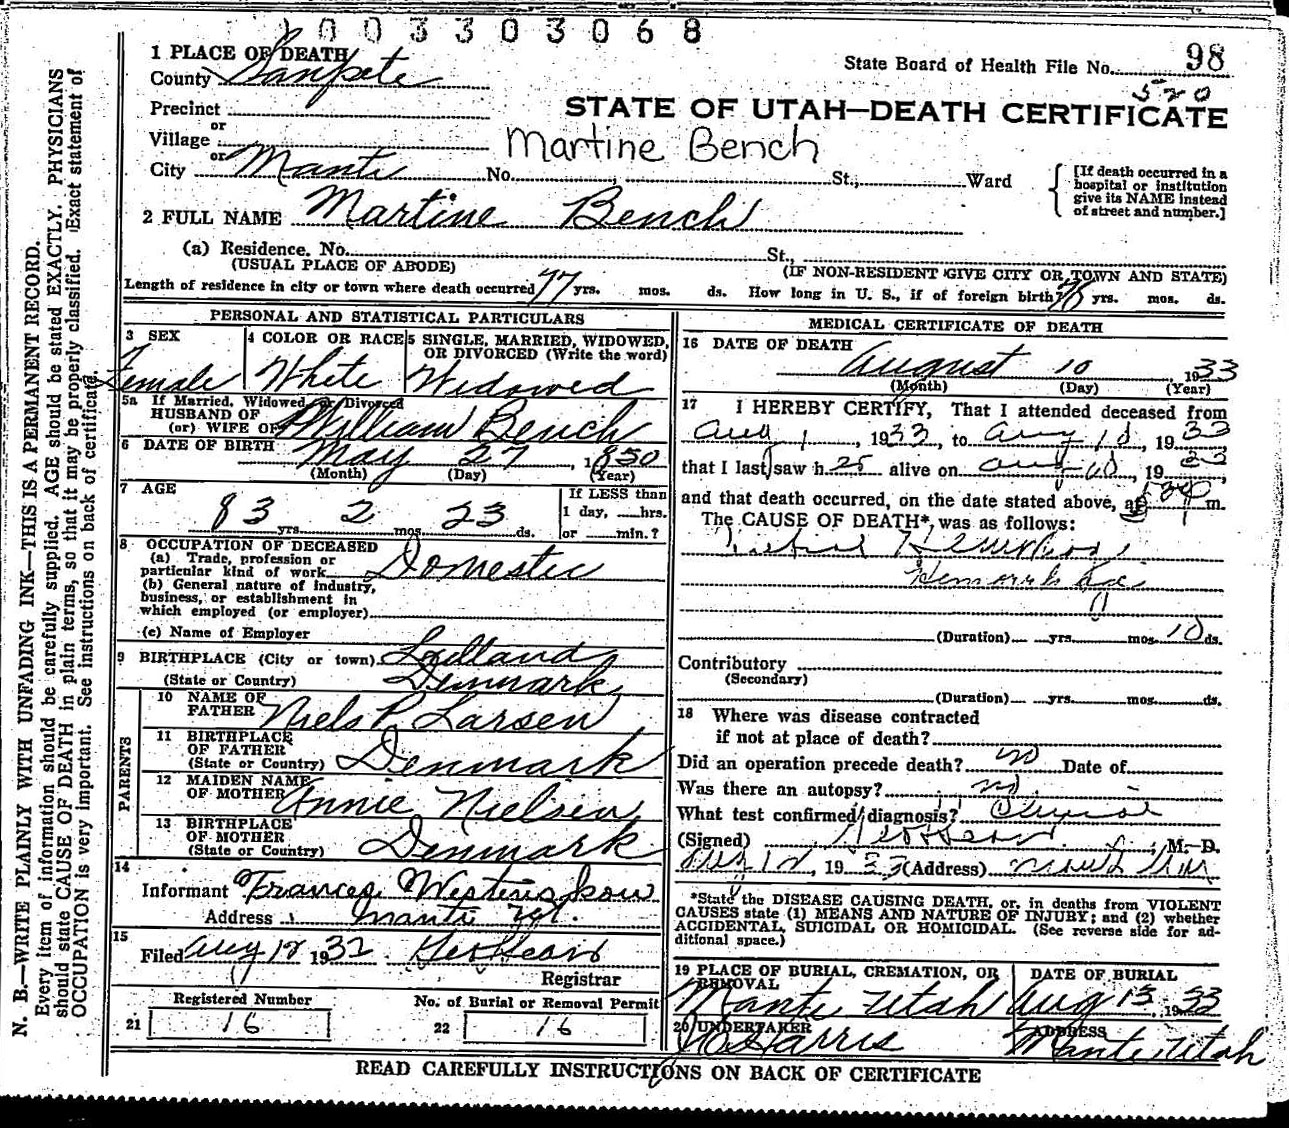 0033303068
1 PLACE OF DEATH
County Sanpete
State Board of Health File No. 98
520
Precinct
or
STATE OF UTAH—DEATH CERTIFICATE
Village
or
Martine Bench
City Manti No. St., Ward
[If death occurred in a hospital or institution give its NAME instead of street and number.]
2 FULL NAME Martine Bench
(a) Residence. No. St.,
(USUAL PLACE OF ABODE) (IF NON-RESIDENT GIVE CITY OR TOWN AND STATE)
Length of residence in city or town where death occurred 77 yrs. mos. ds. How long in U. S., if of foreign birth? yrs. mos. ds.
PERSONAL AND STATISTICAL PARTICULARS
3 SEX
Female
4 COLOR OR RACE
White
5 SINGLE, MARRIED, WIDOWED, OR DIVORCED (Write the word)
Widowed
5a If Married, Widowed, or Divorced
HUSBAND OF
(or) WIFE OF William Bench
6 DATE OF BIRTH May 27, 1850
(Month) (Day) (Year)
7 AGE
83 yrs. 2 mos. 23 ds.
If LESS than
1 day, hrs.
or min.?
8 OCCUPATION OF DECEASED
(a) Trade, profession or
particular kind of work Domestic
(b) General nature of industry,
business, or establishment in
which employed (or employer)
(c) Name of Employer
9 BIRTHPLACE (City or town)
(State or Country) Denmark
PARENTS
10 NAME OF
FATHER Niels P. Larsen
11 BIRTHPLACE
OF FATHER
(State or Country) Denmark
12 MAIDEN NAME
OF MOTHER Annie Nielsen
13 BIRTHPLACE
OF MOTHER
(State or Country) Denmark
14
Informant Frances
Address Manti Ut.
15
Filed Aug 12 1932 Geo
Registrar
Registered Number
21 16
No. of Burial or Removal Permit
22 16
MEDICAL CERTIFICATE OF DEATH
16 DATE OF DEATH
August 10, 1933
(Month) (Day) (Year)
17 I HEREBY CERTIFY, That I attended deceased from
Aug 1, 1933, to Aug 10, 1933
that I last saw h alive on Aug 10, 1933,
and that death occurred, on the date stated above, at m.
The CAUSE OF DEATH*, was as follows:
(Duration) yrs. mos. 10 ds.
Contributory
(Secondary)
(Duration) yrs. mos. ds.
18 Where was disease contracted
if not at place of death?
Did an operation precede death? no Date of
Was there an autopsy? no
What test confirmed diagnosis? Clinical
(Signed) , M. D.
Aug 12, 1933 (Address)
*State the DISEASE CAUSING DEATH, or, in deaths from VIOLENT
CAUSES state (1) MEANS AND NATURE OF INJURY; and (2) whether
ACCIDENTAL, SUICIDAL OR HOMICIDAL. (See reverse side for ad-
ditional space.)
19 PLACE OF BURIAL, CREMATION, OR
REMOVAL
Manti Utah
DATE OF BURIAL
Aug 13, 1933
20 UNDERTAKER
Harris
ADDRESS
Manti, Utah
READ CAREFULLY INSTRUCTIONS ON BACK OF CERTIFICATE
N. B.—WRITE PLAINLY WITH UNFADING INK—THIS IS A PERMANENT RECORD.
Every item of information should be carefully supplied. AGE should be stated EXACTLY. PHYSICIANS
should state CAUSE OF DEATH in plain terms, so that it may be properly classified. Exact statement of
OCCUPATION is very important. See instructions on back of certificate.